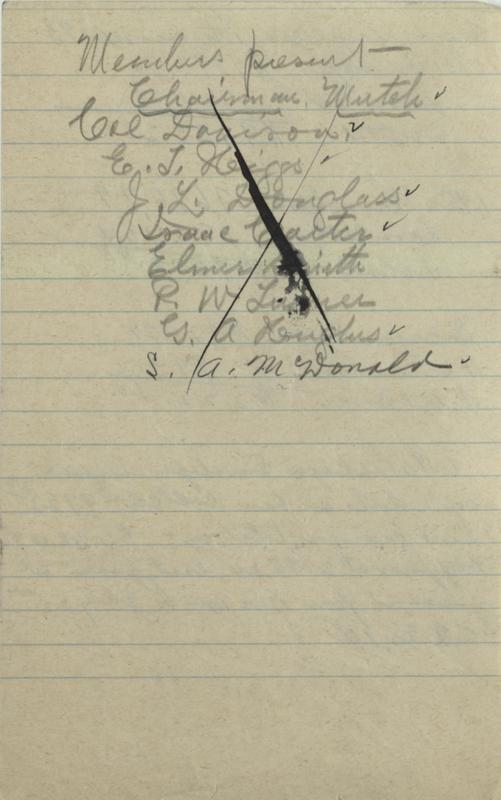 Members present —
Chairman, Mutch ✓
Col Davison, ✓
E. T. Higgs ✓
J. L. Douglass ✓
Isaac Carter ✓
Elmer Smith
R. W. Turner
G. A Hughes ✓
S. A. McDonald ✓